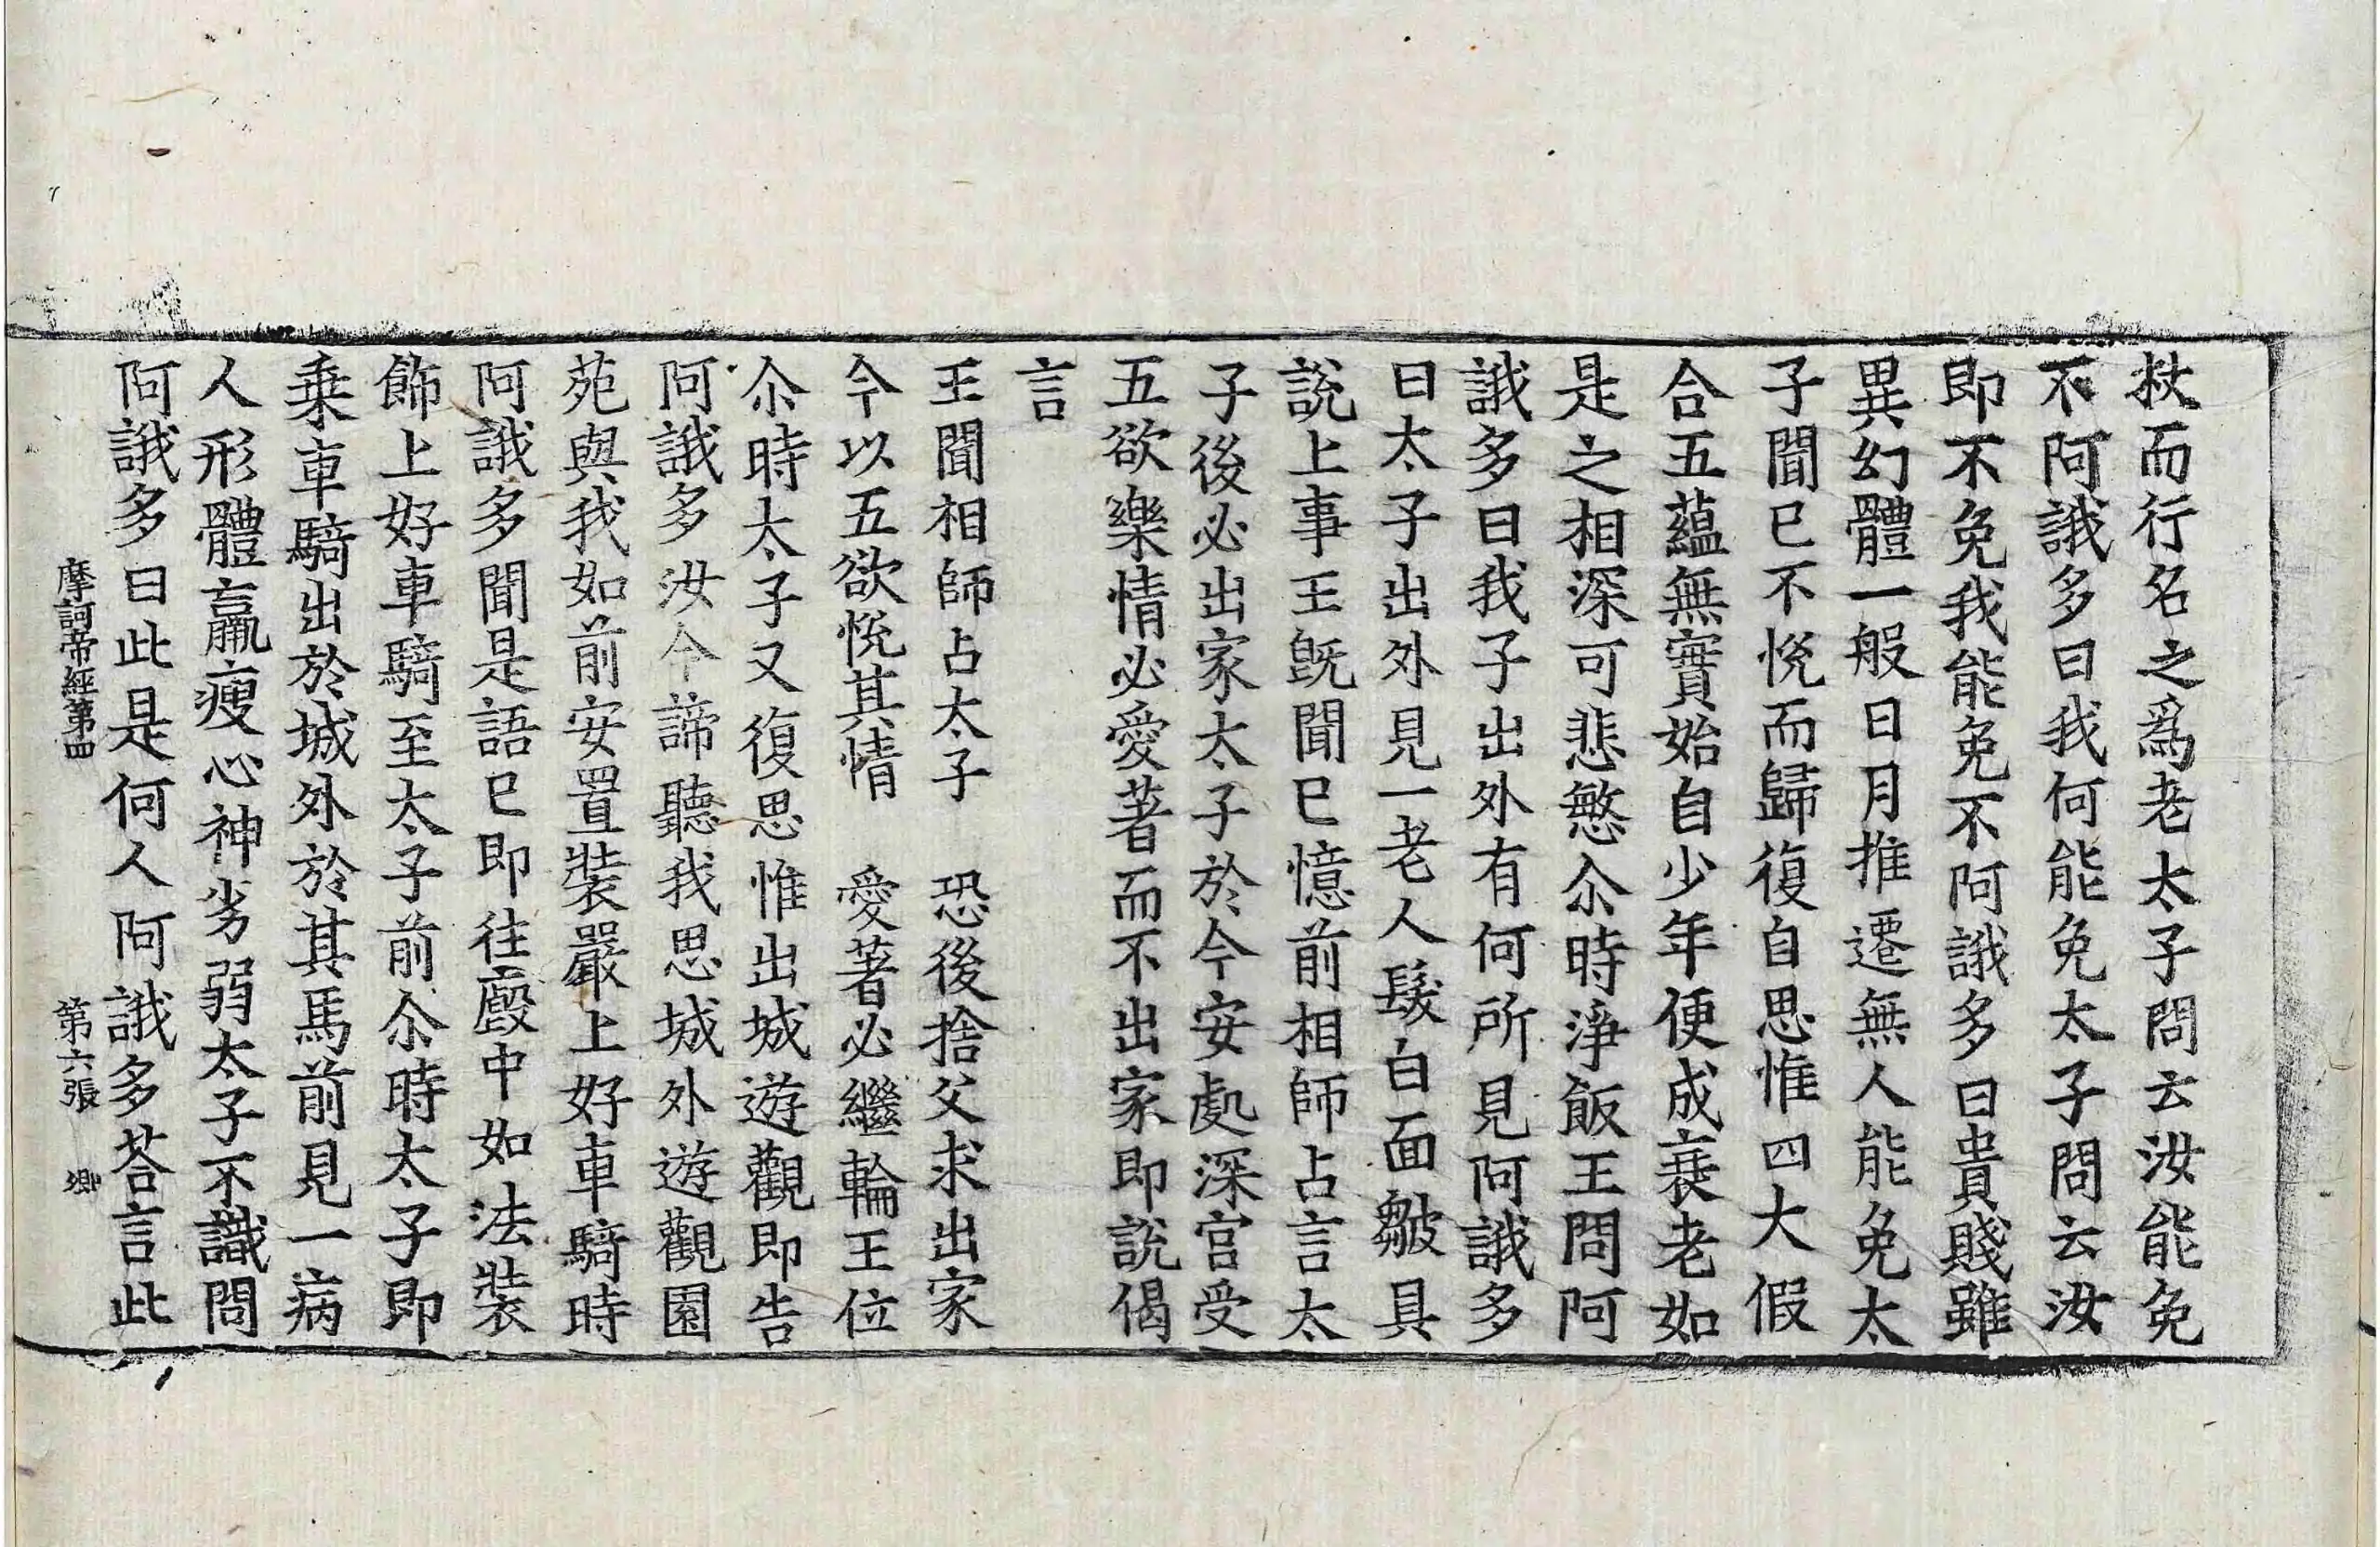 杖而行名之爲老太子問云汝能免
不阿誐多曰我何能免太子問云汝
即不免我能免不阿誐多曰貴賤雖
異幻體一般日月推遷無人能免太
子聞已不悅而歸復自思惟四大假
合五蘊無實始自少年便成衰老如
是之相深可悲慜尒時淨飯王問阿
誐多曰我子出外有何所見阿誐多
曰太子出外見一老人髮白面皺具
說上事王旣聞已憶前相師占言太
子後必出家太子於今安處深宮受
五欲樂情必愛著而不出家即說偈
言
王聞相師占太子　恐後捨父求出家
今以五欲悅其情　愛著必繼輪王位
尒時太子又復思惟出城遊觀即告
阿誐多汝今諦聽我思城外遊觀園
苑與我如前安置裝嚴上好車騎時
阿誐多聞是語已即往廐中如法裝
飾上好車騎至太子前尒時太子即
乗車騎出於城外於其馬前見一病
人形體羸瘦心神劣弱太子不識問
阿誐多曰此是何人阿誐多荅言此
摩訶帝經第四　第六張　卿